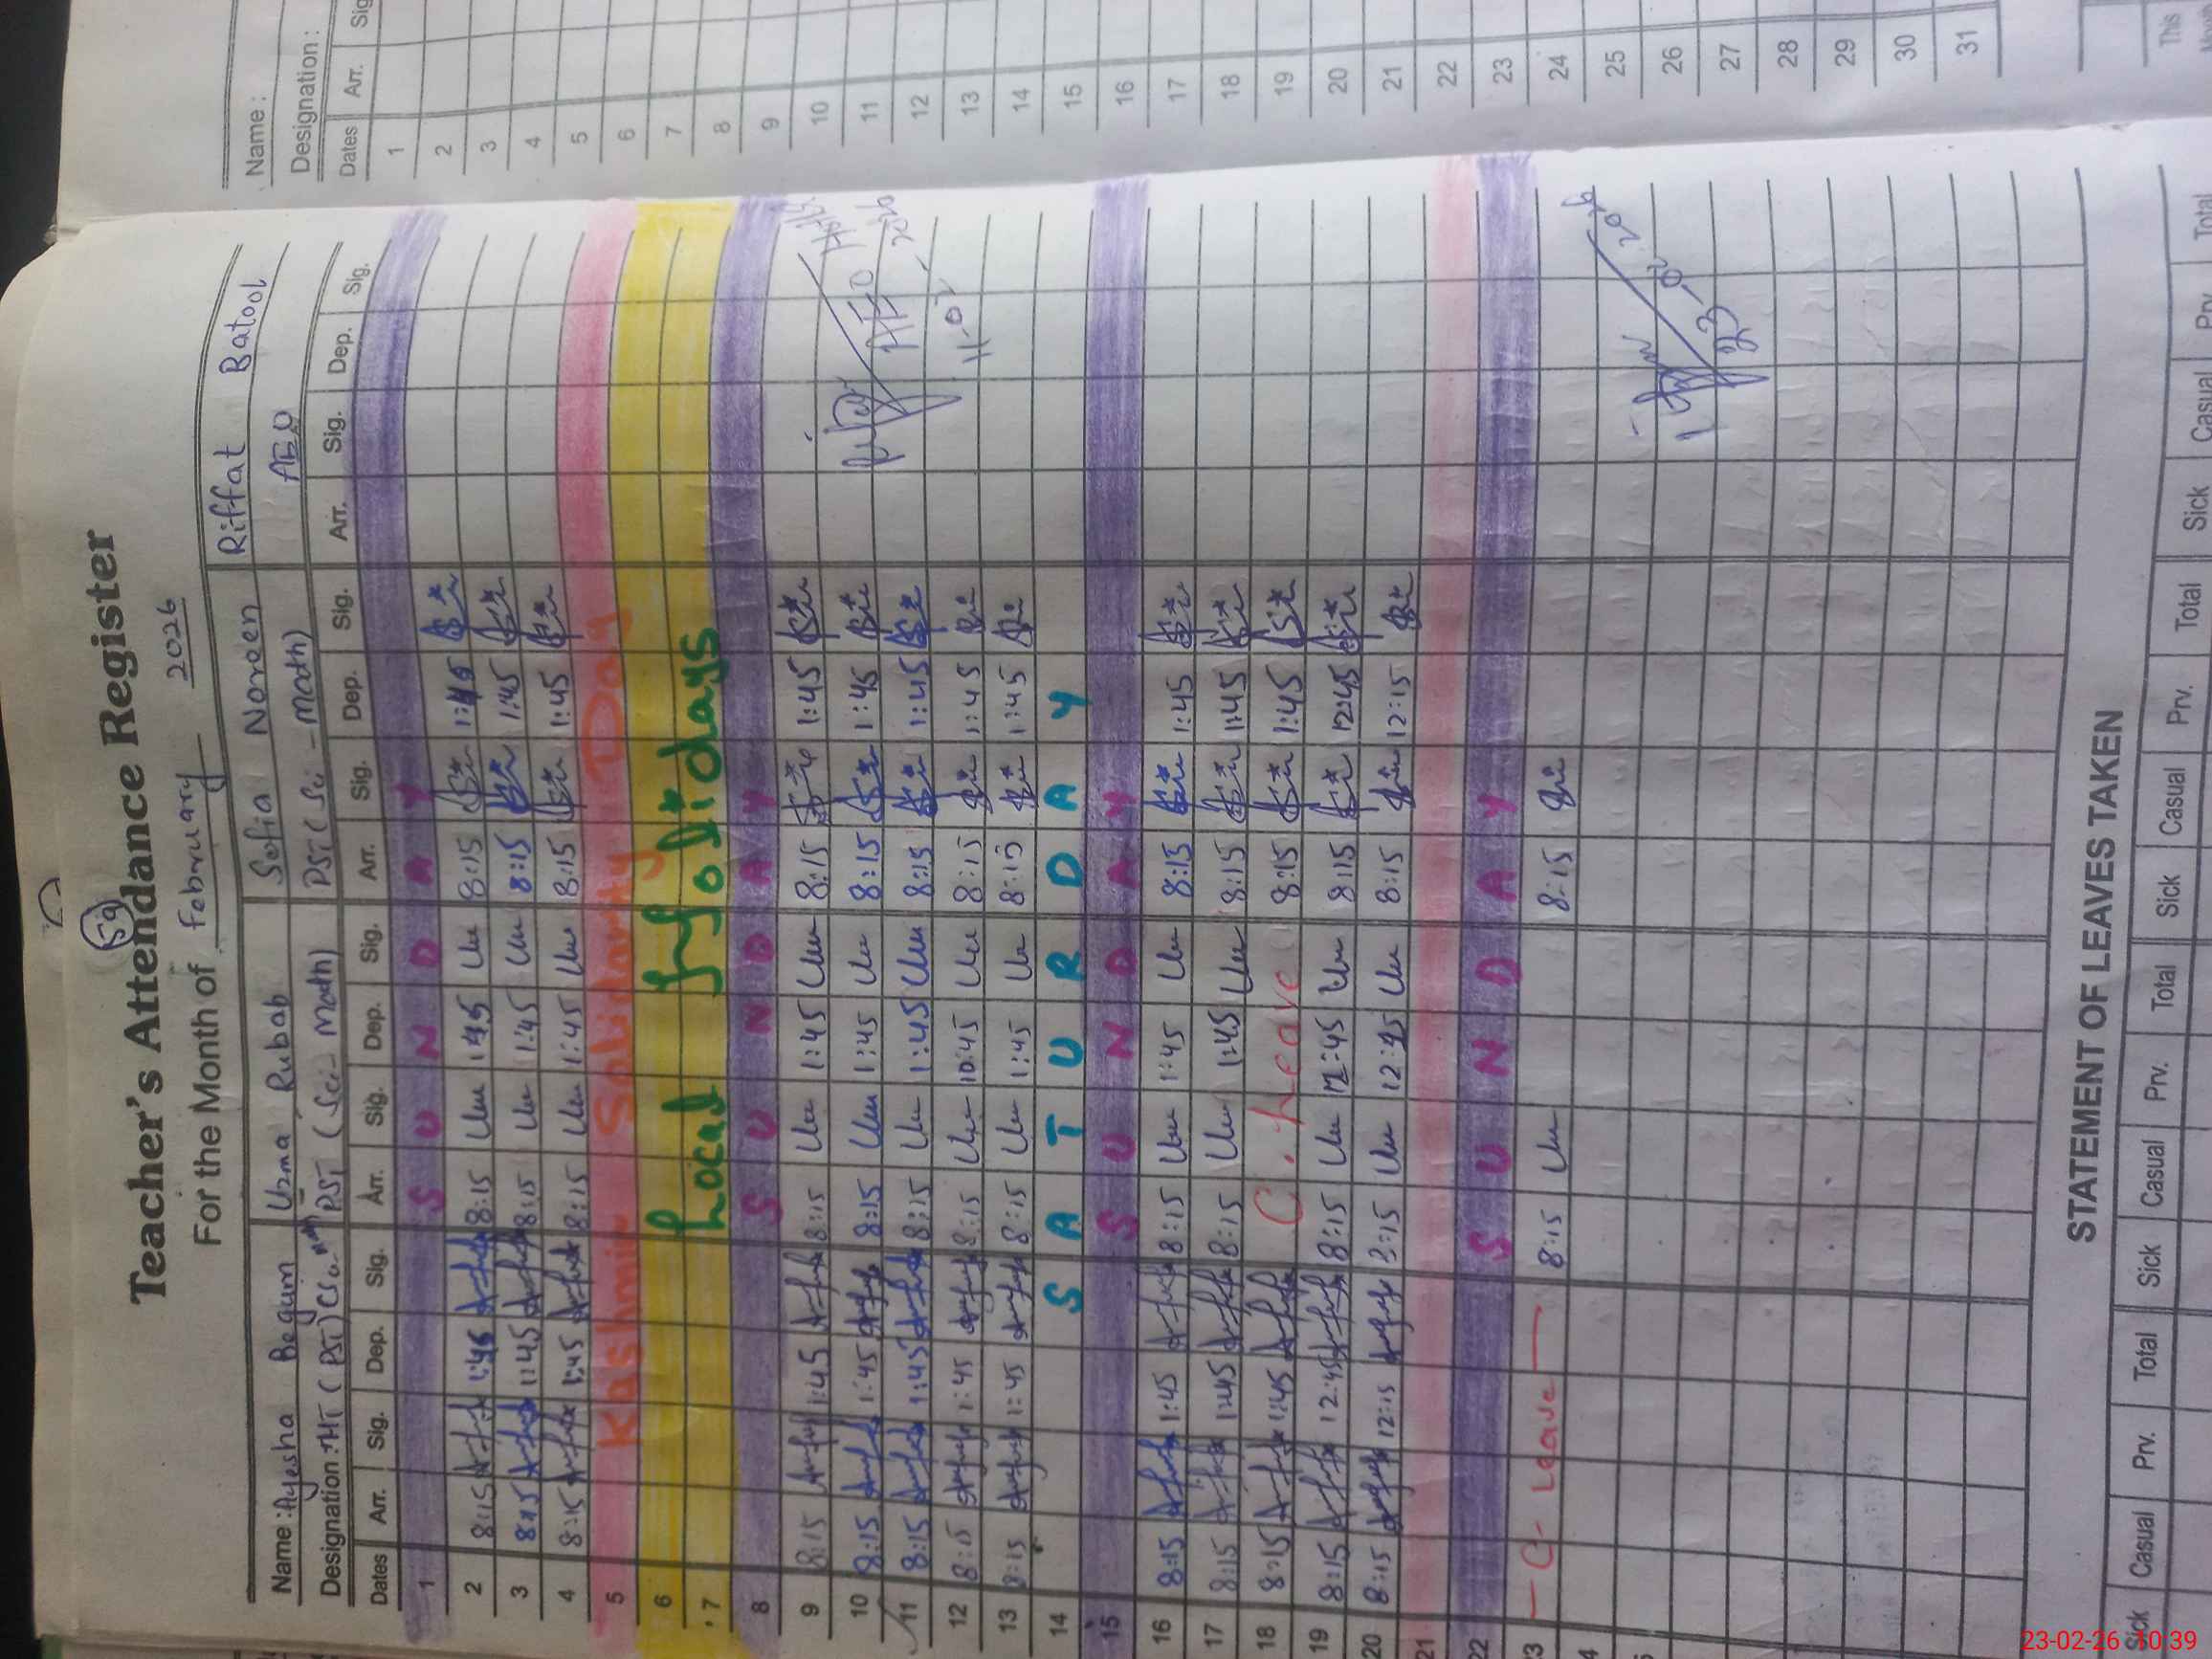 59
Teacher's Attendance Register
For the Month of February 2026
Name: Ayesha Begum Uzma Rubab Sofia Noreen Riffat Batool
Designation: HT (PST) PST (Sci - Math) PST (Sci - Math) AEO
Dates Arr. Sig. Dep. Sig. Arr. Sig. Dep. Sig. Arr. Sig. Dep. Sig. Arr. Sig. Dep. Sig.
1 S U N D A Y
2 8:15 1:45 8:15 1:45 8:15 1:45
3 8:15 1:45 8:15 1:45 8:15 1:45
4 8:15 1:45 8:15 1:45 8:15 1:45
5 Kashmir Solidarity Day
6
7 Local Holidays
8 S U N D A Y
9 8:15 1:45 8:15 1:45 8:15 1:45
10 8:15 1:45 8:15 1:45 8:15 1:45
11 8:15 1:45 8:15 1:45 8:15 1:45 AEO
12 8:15 1:45 8:15 10:45 8:15 1:45 11-02-2026
13 8:15 1:45 8:15 1:45 8:15 1:45
14 S A T U R D A Y
15 S U N D A Y
16 8:15 1:45 8:15 1:45 8:15 1:45
17 8:15 1:45 8:15 1:45 8:15 1:45
18 8:15 1:45 C. Leave 8:15 1:45
19 8:15 12:45 8:15 12:45 8:15 12:45
20 8:15 12:15 8:15 12:15 8:15 12:15
21
22 S U N D A Y
23 C- Leave 8:15 8:15
23-02-2026
STATEMENT OF LEAVES TAKEN
Sick Casual Prv. Total Sick Casual Prv. Total Sick Casual Prv. Total Sick Casual Prv. Total
Name:
Designation:
Dates Arr. Sig
1
2
3
4
5
6
7
8
9
10
11
12
13
14
15
16
17
18
19
20
21
22
23
24
25
26
27
28
29
30
31
This
23-02-26 10:39